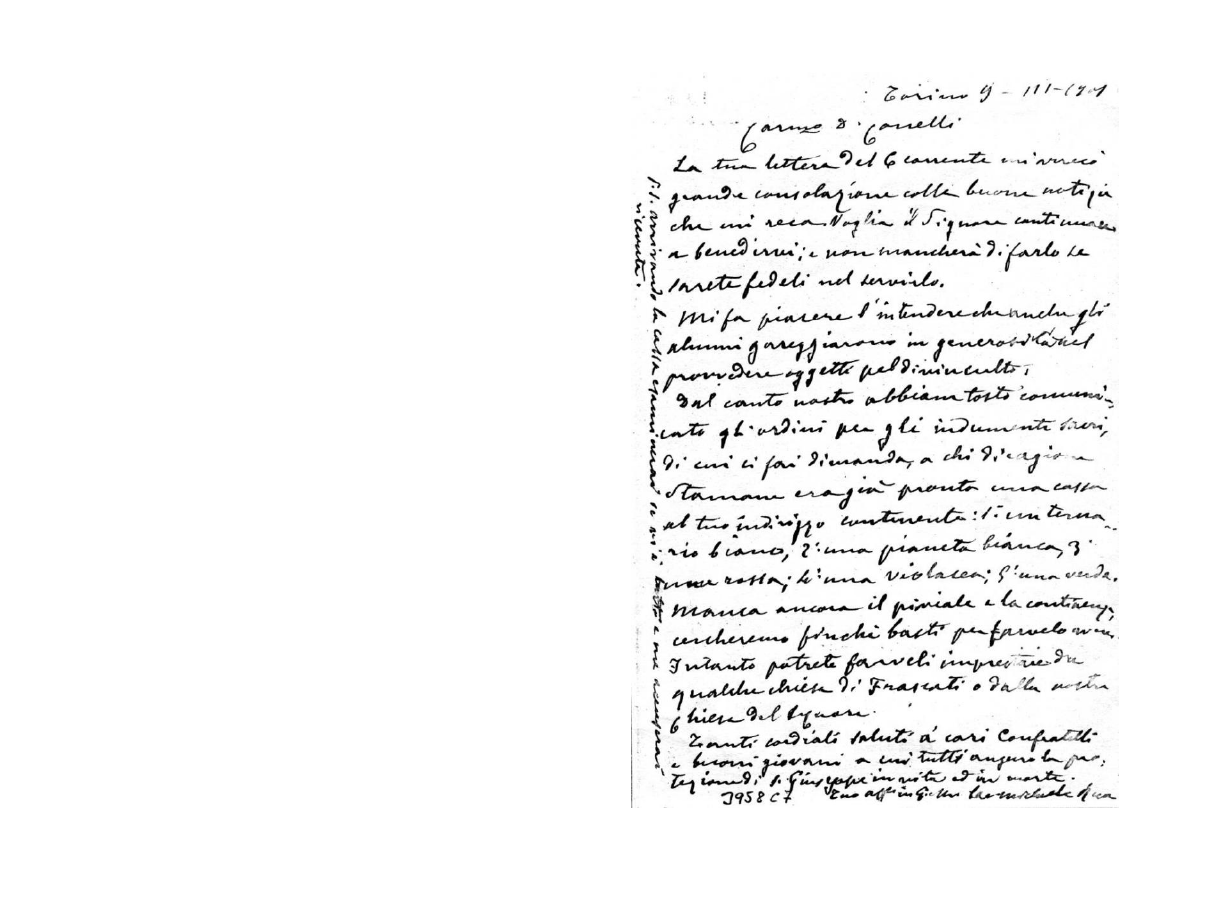 Torino 9 - III - 1901
Carmo D. Conelli
La tua lettera del 6 corrente mi arrecò
grande consolazione colle buone notizie
che mi reca. Voglia il Signore continuare
a benedirvi; e non mancherà di farlo se
sarete fedeli nel servirlo.
Mi fa piacere l'intendere che anche gli
alunni gareggiarono in generosità nel
provvedere oggetti pel divin culto.
Dal canto nostro abbiam tosto comuni-
cato gli ordini per gli indumenti sacri,
di cui ci fai dimanda, a chi di ragione
Stamane era già pronta una cassa
al tuo indirizzo contenente: 1º un terna-
rio bianco, 2º una pianeta bianca, 3º
una rossa; 4º una violacea; 5º una verde.
Manca ancora il piviale e la continenza,
cercheremo finchè basti per farvelo
Intanto potrete farveli imprestare da
qualche chiesa di Frascati o dalla nostra
Chiesa del S. Cuore.
Tanti cordiali saluti a' cari Confratelli
e buoni giovani a cui tutti auguro la pro-
tezione di S. Giuseppe in vita ed in morte.
Tuo aff in G. Sac Michele Rua
3958 C7
P.S. Arrivando la cassa esaminerai se vi è tutto e me ne
ricevuta.